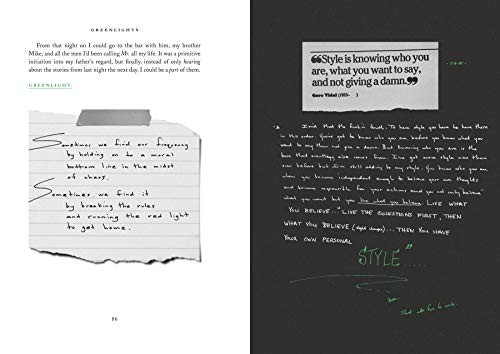 GREENLIGHTS
From that night on I could go to the bar with him, my brother
Mike, and all the men I'd been calling Mr. all my life. It was a primitive
initiation into my father's regard, but finally, instead of only hearing
about the stories from last night the next day, I could be a part of them.
GREENLIGHT.
Sometimes we find our frequency
by holding on to a moral
bottom line in the midst
of chaos.
Sometimes, we find it
by breaking the rules
and running the red light
to get home.
86
❝Style is knowing who you
are, what you want to say,
and not giving a damn.❞
Gore Vidal (1925- )
the truth. To have style you have to have these
in this order. You've got to know who you are before you know what you
want to say then not give a damn. But knowing who you are is the
base that everything else comes from. I've got more style now than
ever before but I'm still adding to my style. You know who you are
when you become independent enough to believe your own thoughts
and become responsible for your actions and you not only believe
what you want but you live what you believe. LIVE WHAT
YOU BELIEVE... "LIVE THE QUESTIONS FIRST, THEN
WHAT YOU BELIEVE ... THEN YOU HAVE
YOUR OWN PERSONAL
STYLE"